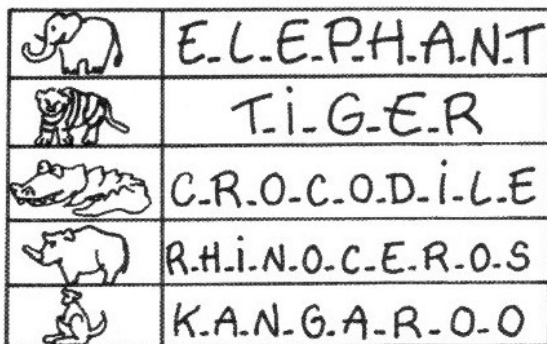 E-L-E-P-H-A-N-T
T-i-G-E-R
C-R-O-C-O-D-i-L-E
R-H-i-N-O-C-E-R-O-S
K-A-N-G-A-R-O-O